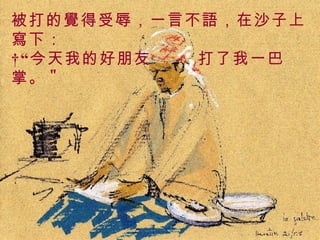 被打的覺得受辱，一言不語，在沙子上
寫下：
†“今天我的好朋友 打了我一巴
掌。"
la palabre